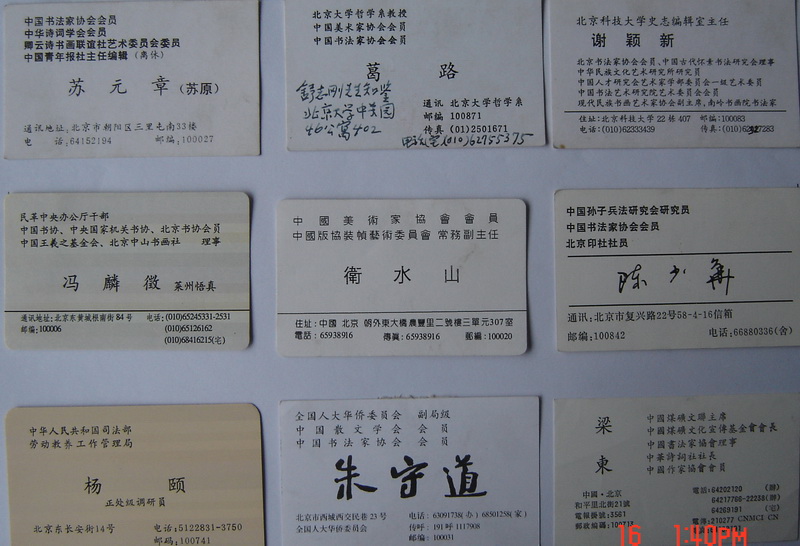 中国书法家协会会员
中华诗词学会会员
卿云诗书画联谊社艺术委员会委员
中国青年报社主任编辑 (离休)
苏元章 (苏原)
通讯地址, 北京市朝阳区三里屯南33楼
电 话, 64152194 邮编, 100027
北京大学哲学系教授
中国美术家协会会员
中国书法家协会会员
葛 路
通讯 北京大学哲学系
邮编 100871
传真 (01)2501671
北京大学中关园
46公寓402
电话宅(010)62755375
北京科技大学史志编辑室主任
谢颖新
北京书法家协会会员、中国古代怀素书法研究会理事
中华民族文化艺术研究所研究员
中国人才研究会艺术家学部委员会一级艺术委员
中国书法艺术研究院艺术委员会会员
现代民族书画艺术家协会副主席,南岭书画院书法家
住址:北京科技大学22栋407 邮编:100083
电话:(010)62333439 传真:
民革中央办公厅干部
中国书协、中央国家机关书协、北京书协会员
中国王羲之基金会、北京中山书画社 理事
冯麟徵 莱州悟真
通讯地址:北京东黄城根南街84号 电话:(010)65245331-2531
邮编:100006 (010)65126162
(010)68416215(宅)
中國美術家協會會員
中國版協裝幀藝術委員會 常務副主任
衛水山
住址:中國 北京 朝外東大橋農豐里二號樓三單元307室
電話:65938916 傳真:65938916 郵編:100020
中国孙子兵法研究会研究员
中国书法家协会会员
北京印社社员
通讯:北京市复兴路22号58-4-16信箱
邮编:100842 电话:66880336(舍)
中华人民共和国司法部
劳动教养工作管理局
杨 颐
正处级调研员
北京东长安街14号 电话:5122831-3750
邮码:100741
全国人大华侨委员会 副局级
中国散文学会 会员
中国书法家协会 会员
朱守道
北京市西城西交民巷23号 电话:63091738(办) 68501258(家)
全国人大华侨委员会 传呼:191呼1117908
邮编:100031
梁東
中國煤礦文聯主席
中國煤礦文化宣傳基金會會長
中國書法家協會理事
中華詩詞社社長
中國作家協會會員
中國·北京
和平里北街21號
電報掛號:3561
郵政編碼:
電話:64202120 (辦)
64217766-22238(辦)
64269191 (宅)
電傳:210277 CNMCI CN
16 1:40PM